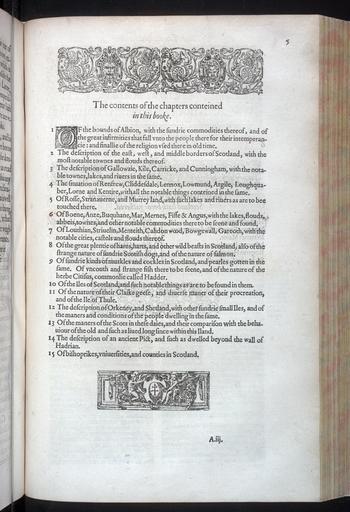 5
The contents of the chapters conteined
in this booke.
1 OF the bounds of Albion, with the sundrie commodities thereof, and of
the great infirmities that fall vnto the people there for their intemperan-
cie: and finallie of the religion vsed there in old time.
2 The description of the east, west, and middle borders of Scotland, with the
most notable townes and flouds thereof.
3 The description of Gallowaie, Kile, Carricke, and Cunningham, with the nota-
ble townes, lakes, and riuers in the same.
4 The situation of Renfrew, Cliddesdale, Lennox, Lowmund, Argile, Loughqua-
ber, Lorne and Kentire, with all the notable things conteined in the same.
5 Of Rosse, Stranauerne, and Murrey land, with such lakes and riuers as are to bee
touched there.
6 Of Boene, Anze, Buquhane, Mar, Mernes, Fiffe & Angus, with the lakes, flouds,
abbeis, townes, and other notable commodities there to be seene and found.
7 Of Louthian, Striuelin, Menteith, Calidon wood, Bowgewall, Gareoth, with the
notable cities, castels and flouds thereof.
8 Of the great plentie of hares, harts, and other wild beasts in Scotland, also of the
strange nature of sundrie Scotish dogs, and of the nature of salmons.
9 Of sundrie kinds of muskles and cockles in Scotland, and pearles gotten in the
same. Of vncouth and strange fish there to be seene, and of the nature of the
herbe Citisus, commonlie called Hadder.
10 Of the Iles of Scotland, and such notable things as are to be found in them.
11 Of the nature of their Claike geese, and diuerse maner of their procreation,
and of the Ile of Thule.
12 The description of Orkeney, and Shetland, with other sundrie small Iles, and of
the maners and conditions of the people dwelling in the same.
13 Of the maners of the Scots in these daies, and their comparison with the beha-
uiour of the old and such as liued long since within this Iland.
14 The description of an ancient Pict, and such as dwelled beyond the wall of
Hadrian.
15 Of bishoprikes, vniuersities, and counties in Scotland.
A.iij.